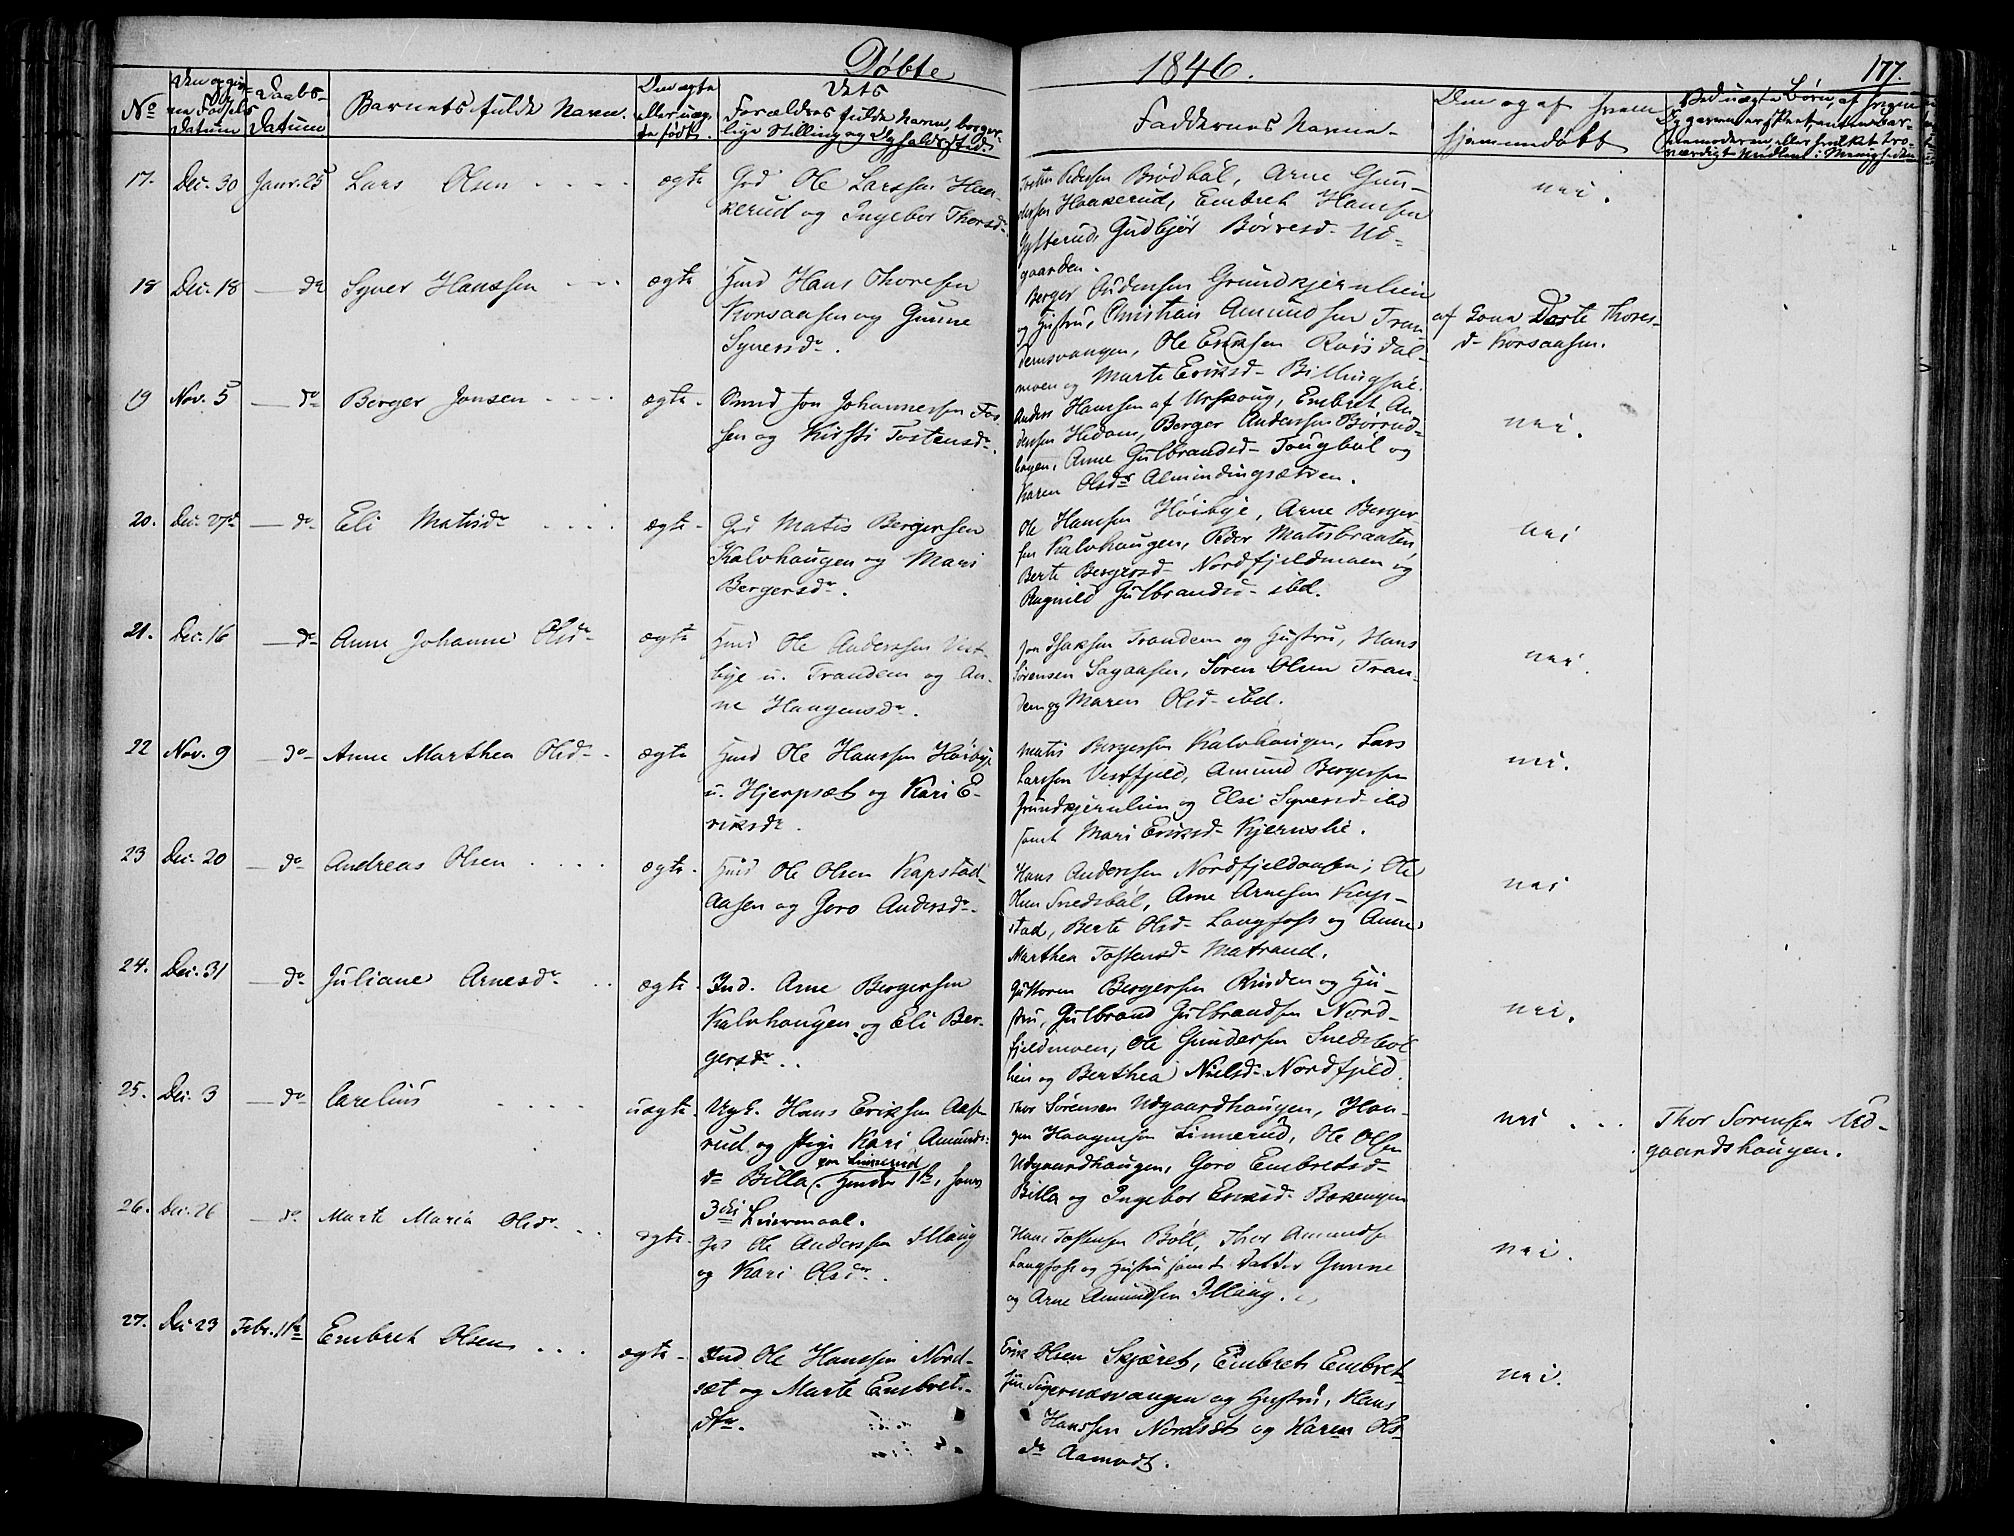 Døbte
1846.
177.
No
Datum
Daabs-
Datum
Barnets fulde Navn.
Den ægte
eller uæg-
te født.
Dets
Forældres fulde Navn, borger-
lige Stilling og Opholdssted.
Faddernes Navne.
Den og af hvem
hjemmedøbt
17.
Dec. 30
Janr. 25
Lars Olsen
ægte
Grd Ole Larssen Haa-
kerud og Ingebor Thorsdr.
Tosten Pedersen Brødbøl, Arne Gun-
dersen Haakerud, Embret Hansen
Gysterud, Gudbjør Børresd. Ud-
gaarden.
nei.
18
Dec. 18
do
Syver Hanssen
ægte
Hmd Hans Thoresen
Korsaasen og Gunne
Syversdr.
Berger Audensen Grundkjernlien
og Hustru, Christian Amundsen Tran-
demsvangen, Ole Eriksen Roisdal-
moen og Marte Eriksd. Billingsøe.
af Gona Dorte Thores-
d. Korsaasen.
19
Nov. 5
do
Berger Jonsen
ægte
Smd Jon Johannessen Fos-
sen og Kirsti Tostensdr.
Anders Hanssen af Urskoug, Embret An-
derssen Hedom, Berger Anderssen Børrud-
haugen, Anne Gulbrandsd. Tougbøl og
Karen Olsdr Almindingsætren.
nei.
20.
Dec. 27de
do
Eli Matisdr
ægte
Grd Matis Bergersen
Kalvhaugen og Mari
Bergersdr.
Ole Hanssen Høibye, Arne Berger-
sen Kalvhaugen, Peder Matisbraaten,
Berte Bergersd. Nordfjeldmoen og
Ragnild Gulbrandsd. ibd.
nei
21.
Dec. 16
do
Anne Johanne Olsdr
ægte
Hmd Ole Anderssen Vest-
bye u. Trandem og An-
ne Haagensdr.
Jon Isaksen Trandem og Hustru, Hans
Sørensen Sagaasen, Søren Olsen Tran-
dem og Maren Olsd. ibd.
nei.
22
Nov. 9
do
Anne Marthea Olsd.
ægte
Hmd Ole Hanssen Høibye
u. Hjerpsæt og Kari E-
riksdr.
Matis Bergersen Kalvhaugen, Lars
Larssen Vestfjeld, Amund Bergersen
Grundkjernlien og Else Syversd. ibd
samt Mari Eriksd. Kjernslie.
nei.
23
Dec. 20
do
Andreas Olsen
ægte
Hmd Ole Olsen Kapstad-
Aasen og Goro Andersdr.
Hans Anderssen Nordfjeldaasen, Ole
Olsen Snedsbøl, Arne Arnesen Kap-
stad, Berte Olsd. Langfoss og Anne
Marthea Tostensd. Matrand.
nei
24.
Dec. 31
do
Juliane Arnesdr
ægte
Ind. Arne Bergersen
Kalvhaugen og Eli Ber-
gersdr.
Guttorm Bergersen Rinden og Hu-
stru, Gulbrand Gulbrandsen Nord-
fjeldmoen, Ole Gundersen Snedsbøl
lien og Berthea Nielsd. Nordfjeld.
nei.
25.
Dec. 3
do
Carelius
uægte
Ugk. Hans Eriksen Aase-
rud og Pige Kari Amunds-
dr Billa (paa Linnerud) Hendes 1te, hans
3die Leiermaal.
Thor Sørensen Udgaardhaugen, Haa-
gen Haagensen Linnerud, Ole Olsen
Udgaardhaugen, Goro Embretsd.
Billa og Ingebor Eriksd. Boxengen
nei
Thor Sørensen Ud-
gaardshaugen.
26.
Dec. 26
do
Marte Maria Olsdr
ægte
Grd Ole Anderssen Maug
og Kari Olsdr.
Hans Tostensen Bøll, Thor Amunds.
Langfoss og Hustru samt Datter Gunne
og Arne Amundsen Maug.
nei.
27.
Dec 23
Febr. 1te
Embret Olsen
ægte
Ind Ole Hanssen Nord-
sæt og Marte Embrets-
dtr.
Erik Olsen Skjæret, Embret Embret-
sen Sigernæsvangen og Hustru, Hans
Hanssen Nordsæt og Karen Ols-
dr Aamodt.
nei.